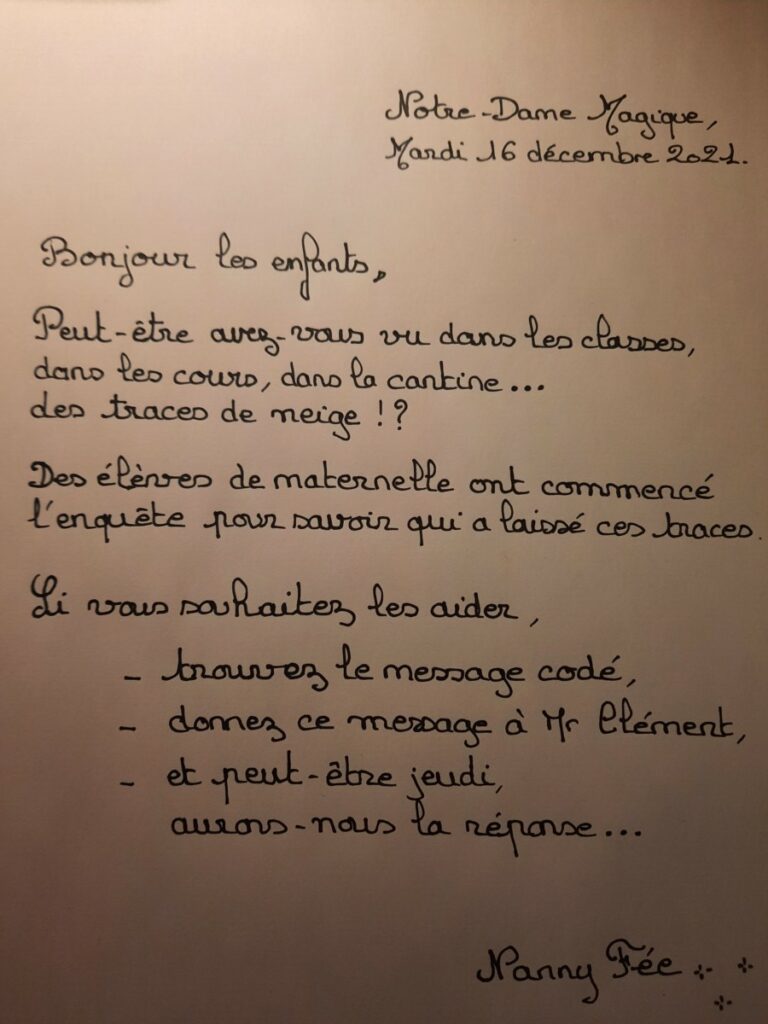 Notre-Dame Magique,
Mardi 16 décembre 2021.
Bonjour les enfants,
Peut-être avez-vous vu dans les classes,
dans les cours, dans la cantine...
des traces de neige !?
Des élèves de maternelle ont commencé
l'enquête pour savoir qui a laissé ces traces.
Si vous souhaitez les aider,
- trouvez le message codé,
- donnez ce message à Mr Clément,
- et peut-être jeudi,
aurons-nous la réponse...
Nanny Fée